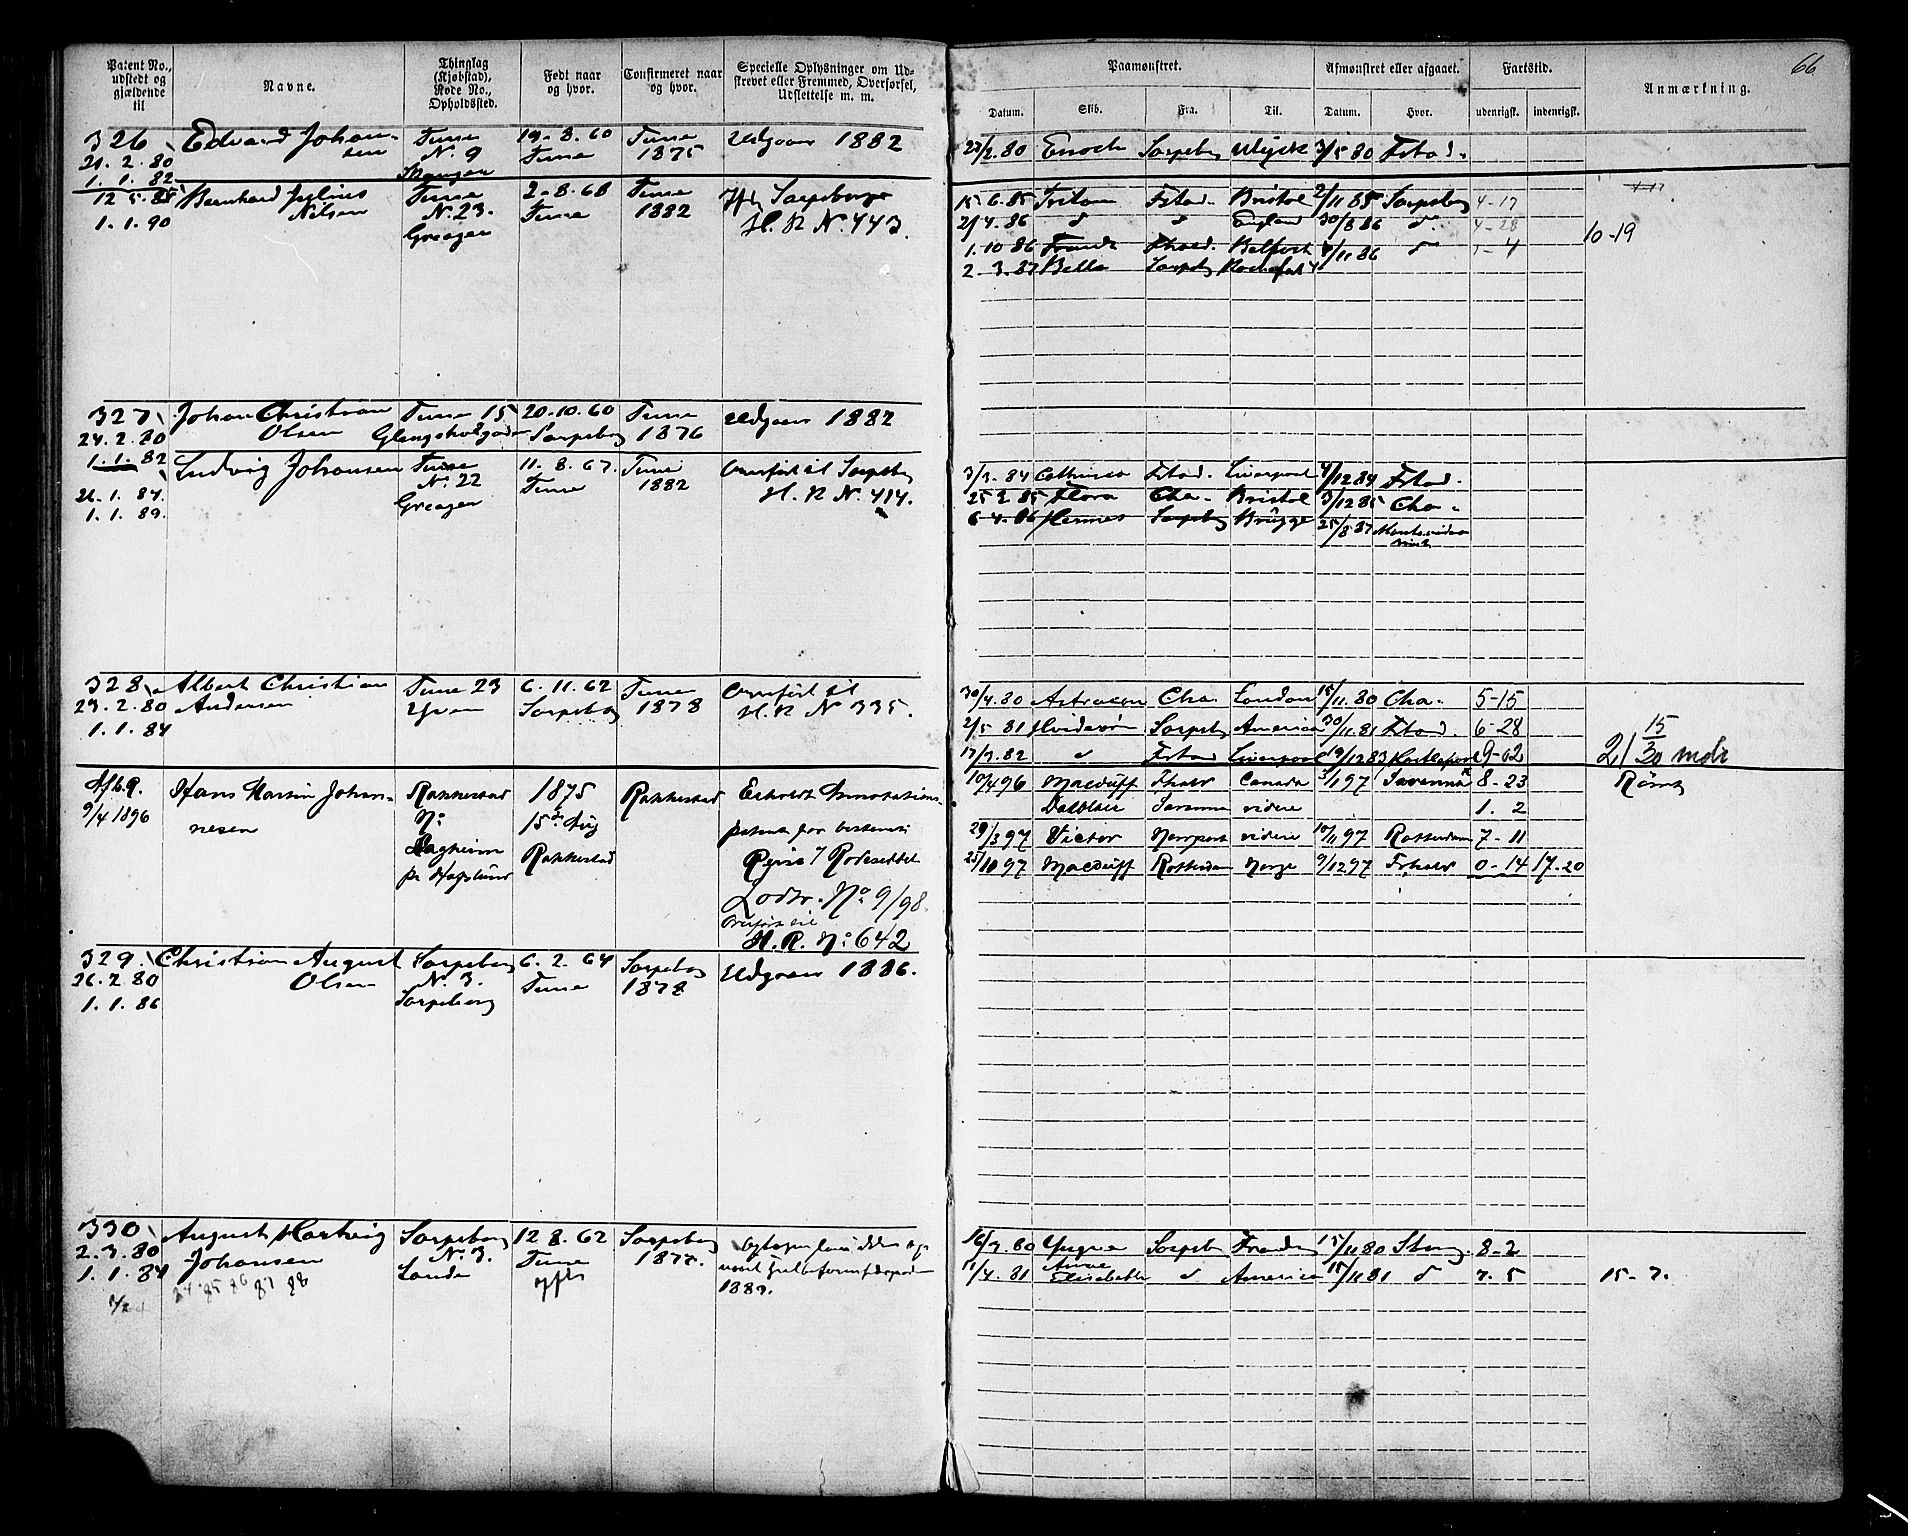 66
Patent No., udstedt og gjældende til
Navne.
Thinglag (Kjøbstad), Rode No., Opholdssted.
Født naar og hvor.
Confirmeret naar og hvor.
Specielle Oplysninger om Udstrevet eller Fremmed, Overførsel, Udslettelse m. m.
Paamønstret.
Afmønstret eller afgaaet.
Fartstid.
Anmærkning.
Datum.
Skib.
Fra.
Til.
Datum.
Hvor.
udenrigsk.
indenrigsk.
326 Edvard Johansen Tune 19.3.60 Tune Udgaar 1882
21.2.80 N. 9 Tune 1875
1.1.82
23/2.80 Enoch Sarpsborg 3/5 80 Fstad.
12.5.85 Bernhard Julius Nilsen Tune 2.8.68 Tune Sarpsborgs
1.1.90 N. 23. Tune 1882 H.R N. 443.
Greager
15.6.85 Triton Fstad. Bristol 2/11 85 Sarpsborg 4-17
2/4.86 d d England 30/8 86 d. 4-28
10-19
1.10.86 Belfast /11 86 d 1-4
2.3.87 Bella Sarpsbg
327 Johan Christian Olsen Tune 15 20.10.60 Tune Udgaar 1882
24.2.80 Sarpsborg 1876
1.1.82
Ludvig Johansen Tune 11.8.67. Tune Overført til Sarpsborg
26.1.84. N. 22 Tune 1882 H.R N. 414.
1.1.89. Greager
3/3.84 Fstad. Liverpool 4/12 84 Fstad.
25.2.85 Flora Cha. Bristol 3/12 85 Cha.
6.4.86 Hermes Sarpsbg Brügge 25/8 87 Montevideo
328 Albert Christian Andersen Tune 23 6.11.62 Tune Overført til
23.2.80 Sarpsborg 1878 H.R N 335.
1.1.84
30/4.80 Cha. London 15/11.80 Cha. 5-15
2/5 81 Sarpsbg America 30/11.81 Fstad. 6-28
17/3.82 d Fstad Liverpool 19/12 83 Hartlepool 9-02
21 15/30 mdr
9/4 1896 Hans Martin Johannesen Rakkestad 1875 Rakkestad Erholdt Annotations-
N: 15de Aug patent for
Rakkestad
Lodsr. No 9/98.
Overført til
H. R. No: 642
10/4 96 Macduff Fhald Canada 3/1 97 Savanna 8-23
Savanna videre 1. 2
29/3 97 Victor Newport videre 10/11 97 Rotterdam 7-11
25/10 97 Macduff Rotterdam Norge 9/12 97 Frhald 0-14 17-20
329. Christian August Olsen Sarpsborg 6.2.64 Sarpsborg Udgaar 1886.
26.2.80 N. 3. Tune 1878
1.1.86 Sarpsborg
330 August Hartvig Johansen Sarpsborg 12.8.62 Sarpsborg
2.3.80 N. 3. Tune 1877.
1.1.84 Sande
85 86 87 88
1883.
16/3.80 Yngve Sarpsb 15/11 80 8-2
11/4.81 Anne Elisabeth d America 15/11 81 d 7.5
15-7.